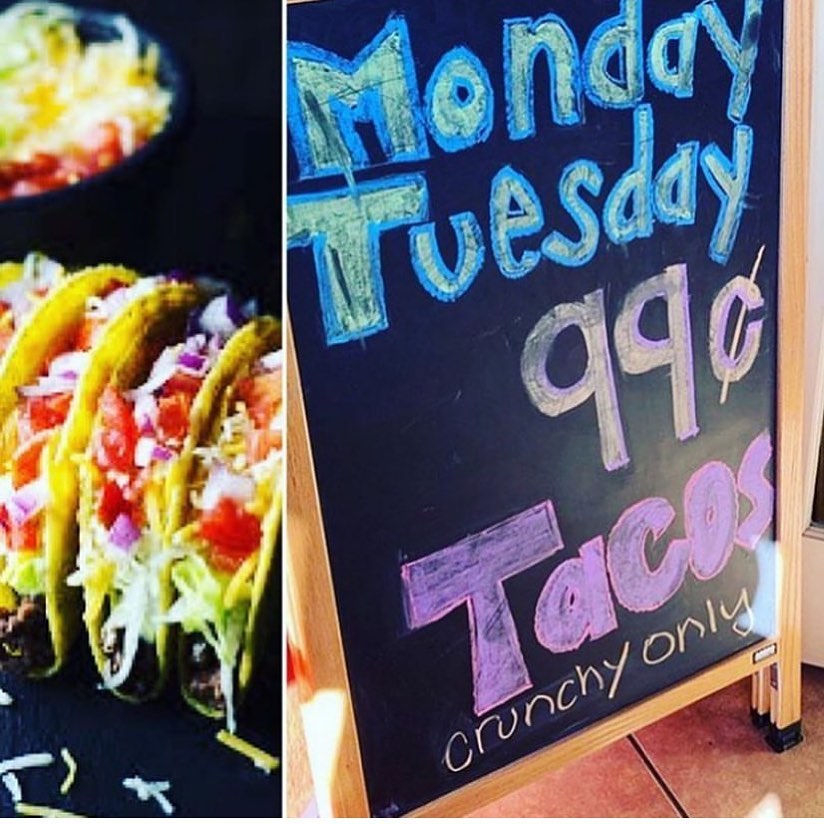 Monday
Tuesday
99¢
Tacos
crunchy only